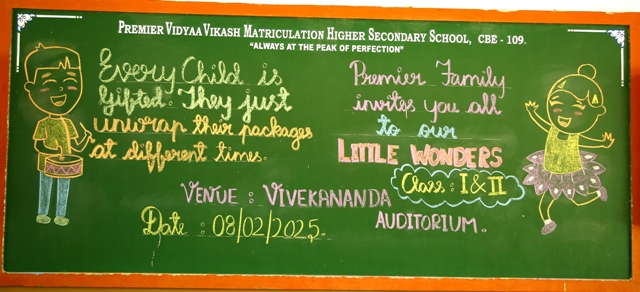 PREMIER VIDYAA VIKASH MATRICULATION HIGHER SECONDARY SCHOOL, CBE - 109.
"ALWAYS AT THE PEAK OF PERFECTION"
Every Child is
Gifted. They just
unwrap their packages
at different times.
Premier Family
invites you all
to our
LITTLE WONDERS
Class : I & II
VENUE : VIVEKANANDA
AUDITORIUM.
Date : 08/02/2025.